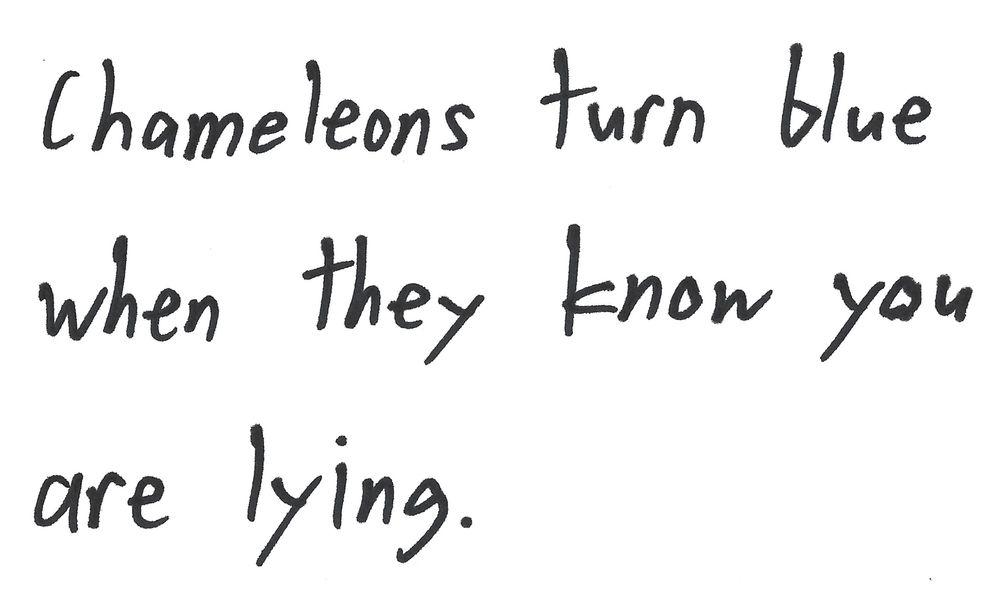 Chameleons turn blue
when they know you
are lying.